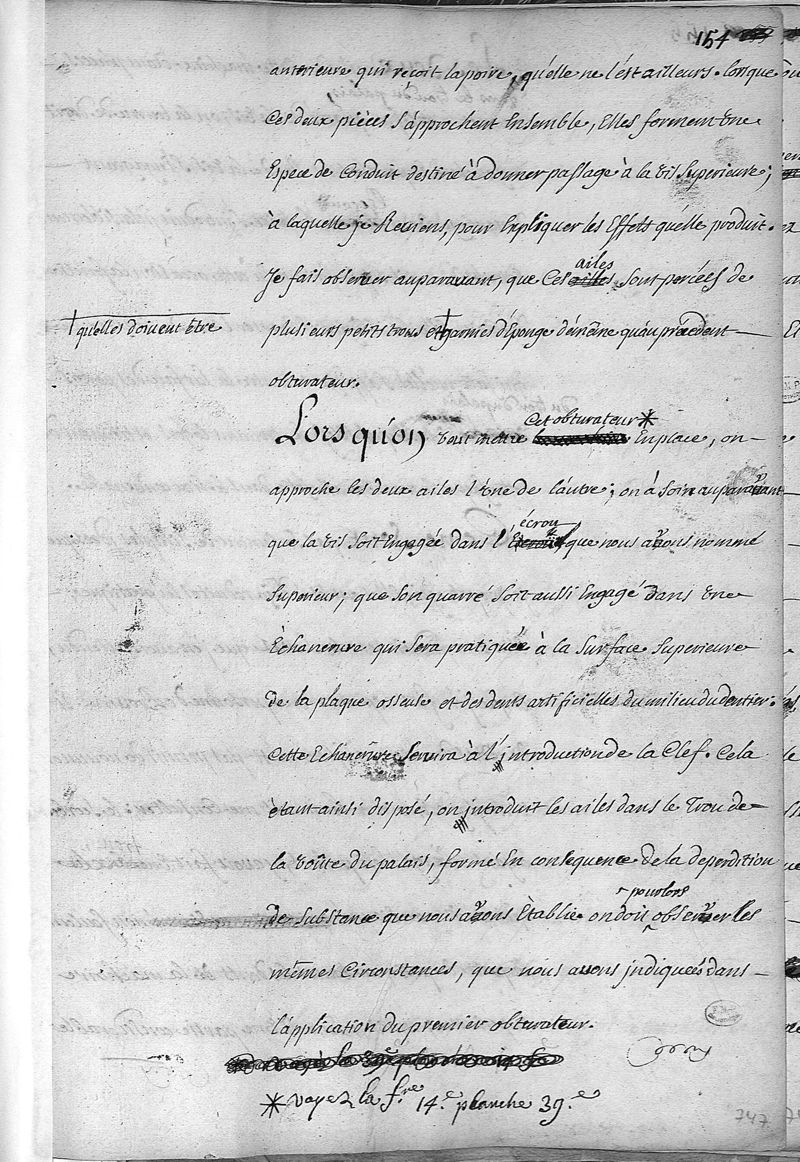 154
anterieure qui reçoit la poire, qu'elle ne l'est ailleurs. lorsque
Ces deux pièces s'approchent Ensemble, Elles forment Une
Espece de Conduit destiné à donner passage à la Vis Superieure;
à laquelle je Reviens, pour Expliquer les Effets qu'elle produit.
ailés
Je fais observer auparavant, que Ces sont percées de
† qu'elles doivent Etre
plusieurs petits trous et † garnies d'Eponge de même qu'au précédent
obturateur.
Cet obturateur *
Lorsqu'on Veut mettre En place, on
approche les deux ailes l'Une de l'autre; on à soin auparavant
écrou
que la Vis soit Engagée dans l' que nous avons nommé
Superieur; que son quarré soit aussi Engagé dans Une
Echancrure qui sera pratiquée à la Surface Superieure
de la plaque osseuse et des dents artificielles du milieu du dentier.
Cette Echancrure servira à l'introduction de la Clef. Cela
étant ainsi disposé, on introduit les ailes dans le Trou de
la Voûte du palais, formé En consequence de la deperdition
pourlors
de substance que nous avons Etablie on doit observer les
mêmes Circonstances, que nous avons indiquées dans
l'application du premier obturateur.
* voyez la f.re 14.e planche 39.e
347